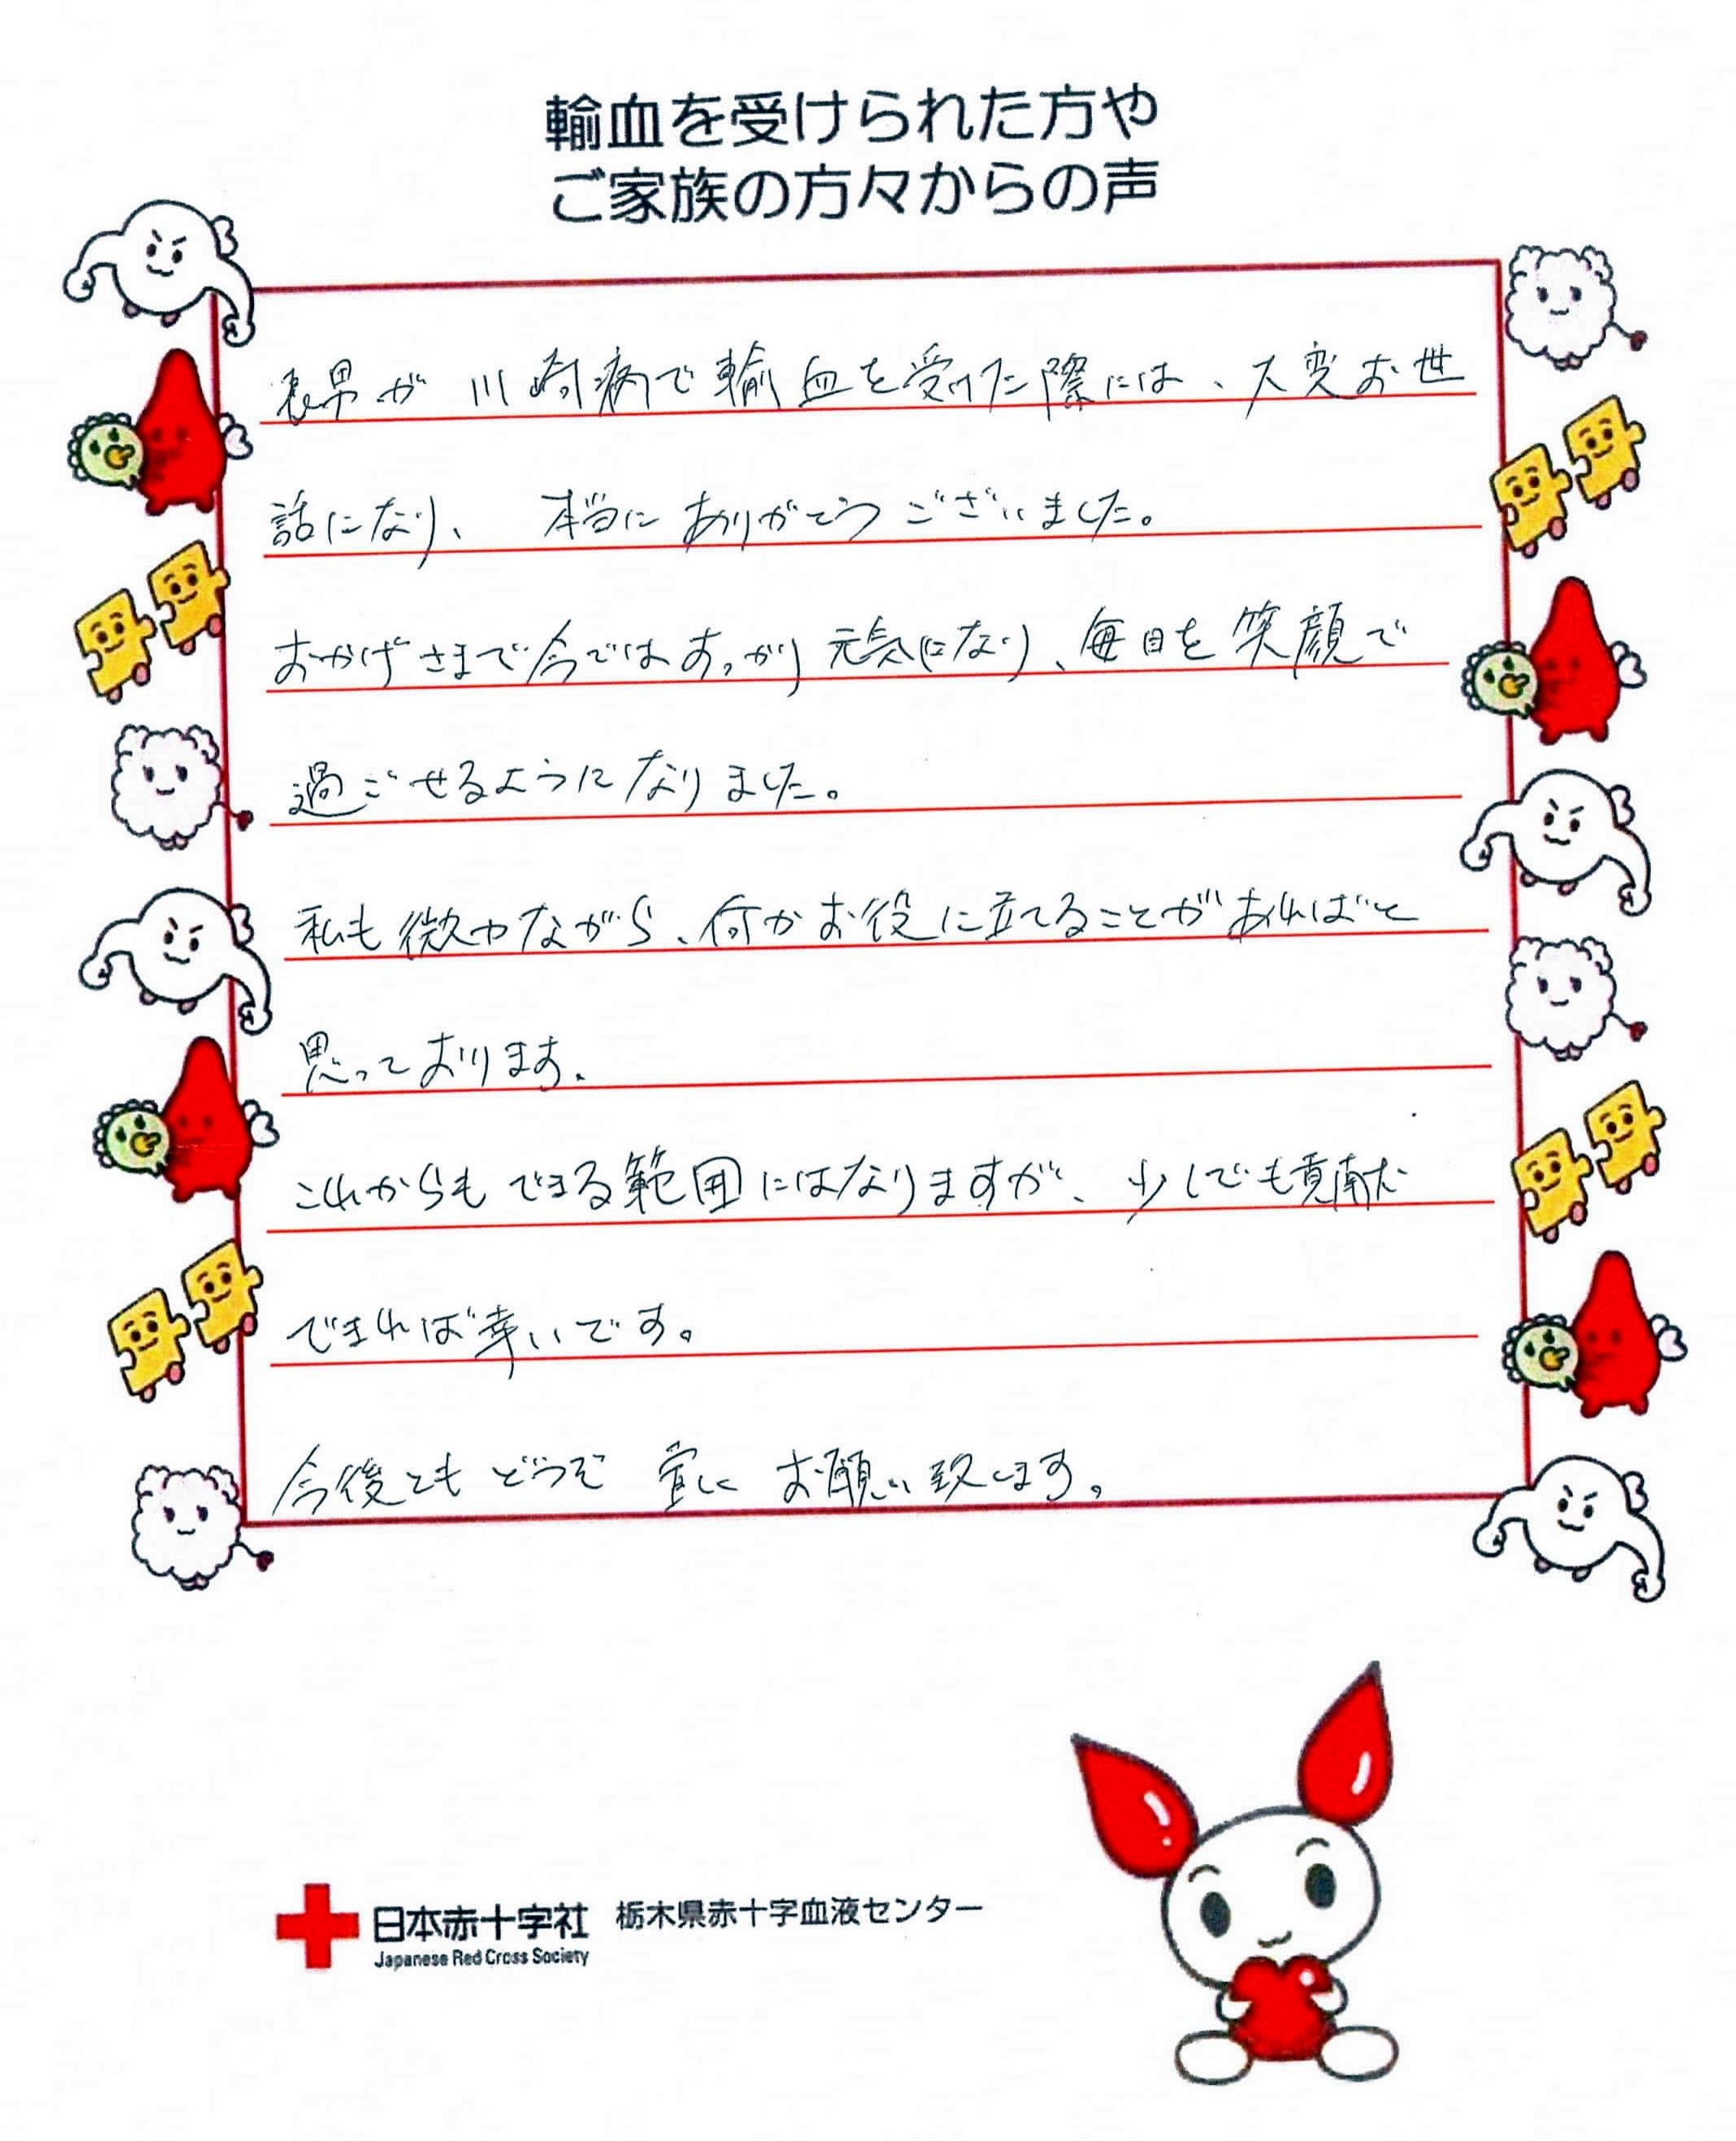 輸血を受けられた方や
ご家族の方々からの声
長男が川崎病で輸血を受けた際には、大変お世
話になり、本当にありがとうございました。
おかげさまで今ではすっかり元気になり、毎日を笑顔で
過ごせるようになりました。
私も微力ながら、何かお役に立てることがあればと
思っております。
これからもできる範囲にはなりますが、少しでも貢献が
できれば幸いです。
今後ともどうぞ宜しくお願い致します。
日本赤十字社 栃木県赤十字血液センター
Japanese Red Cross Society